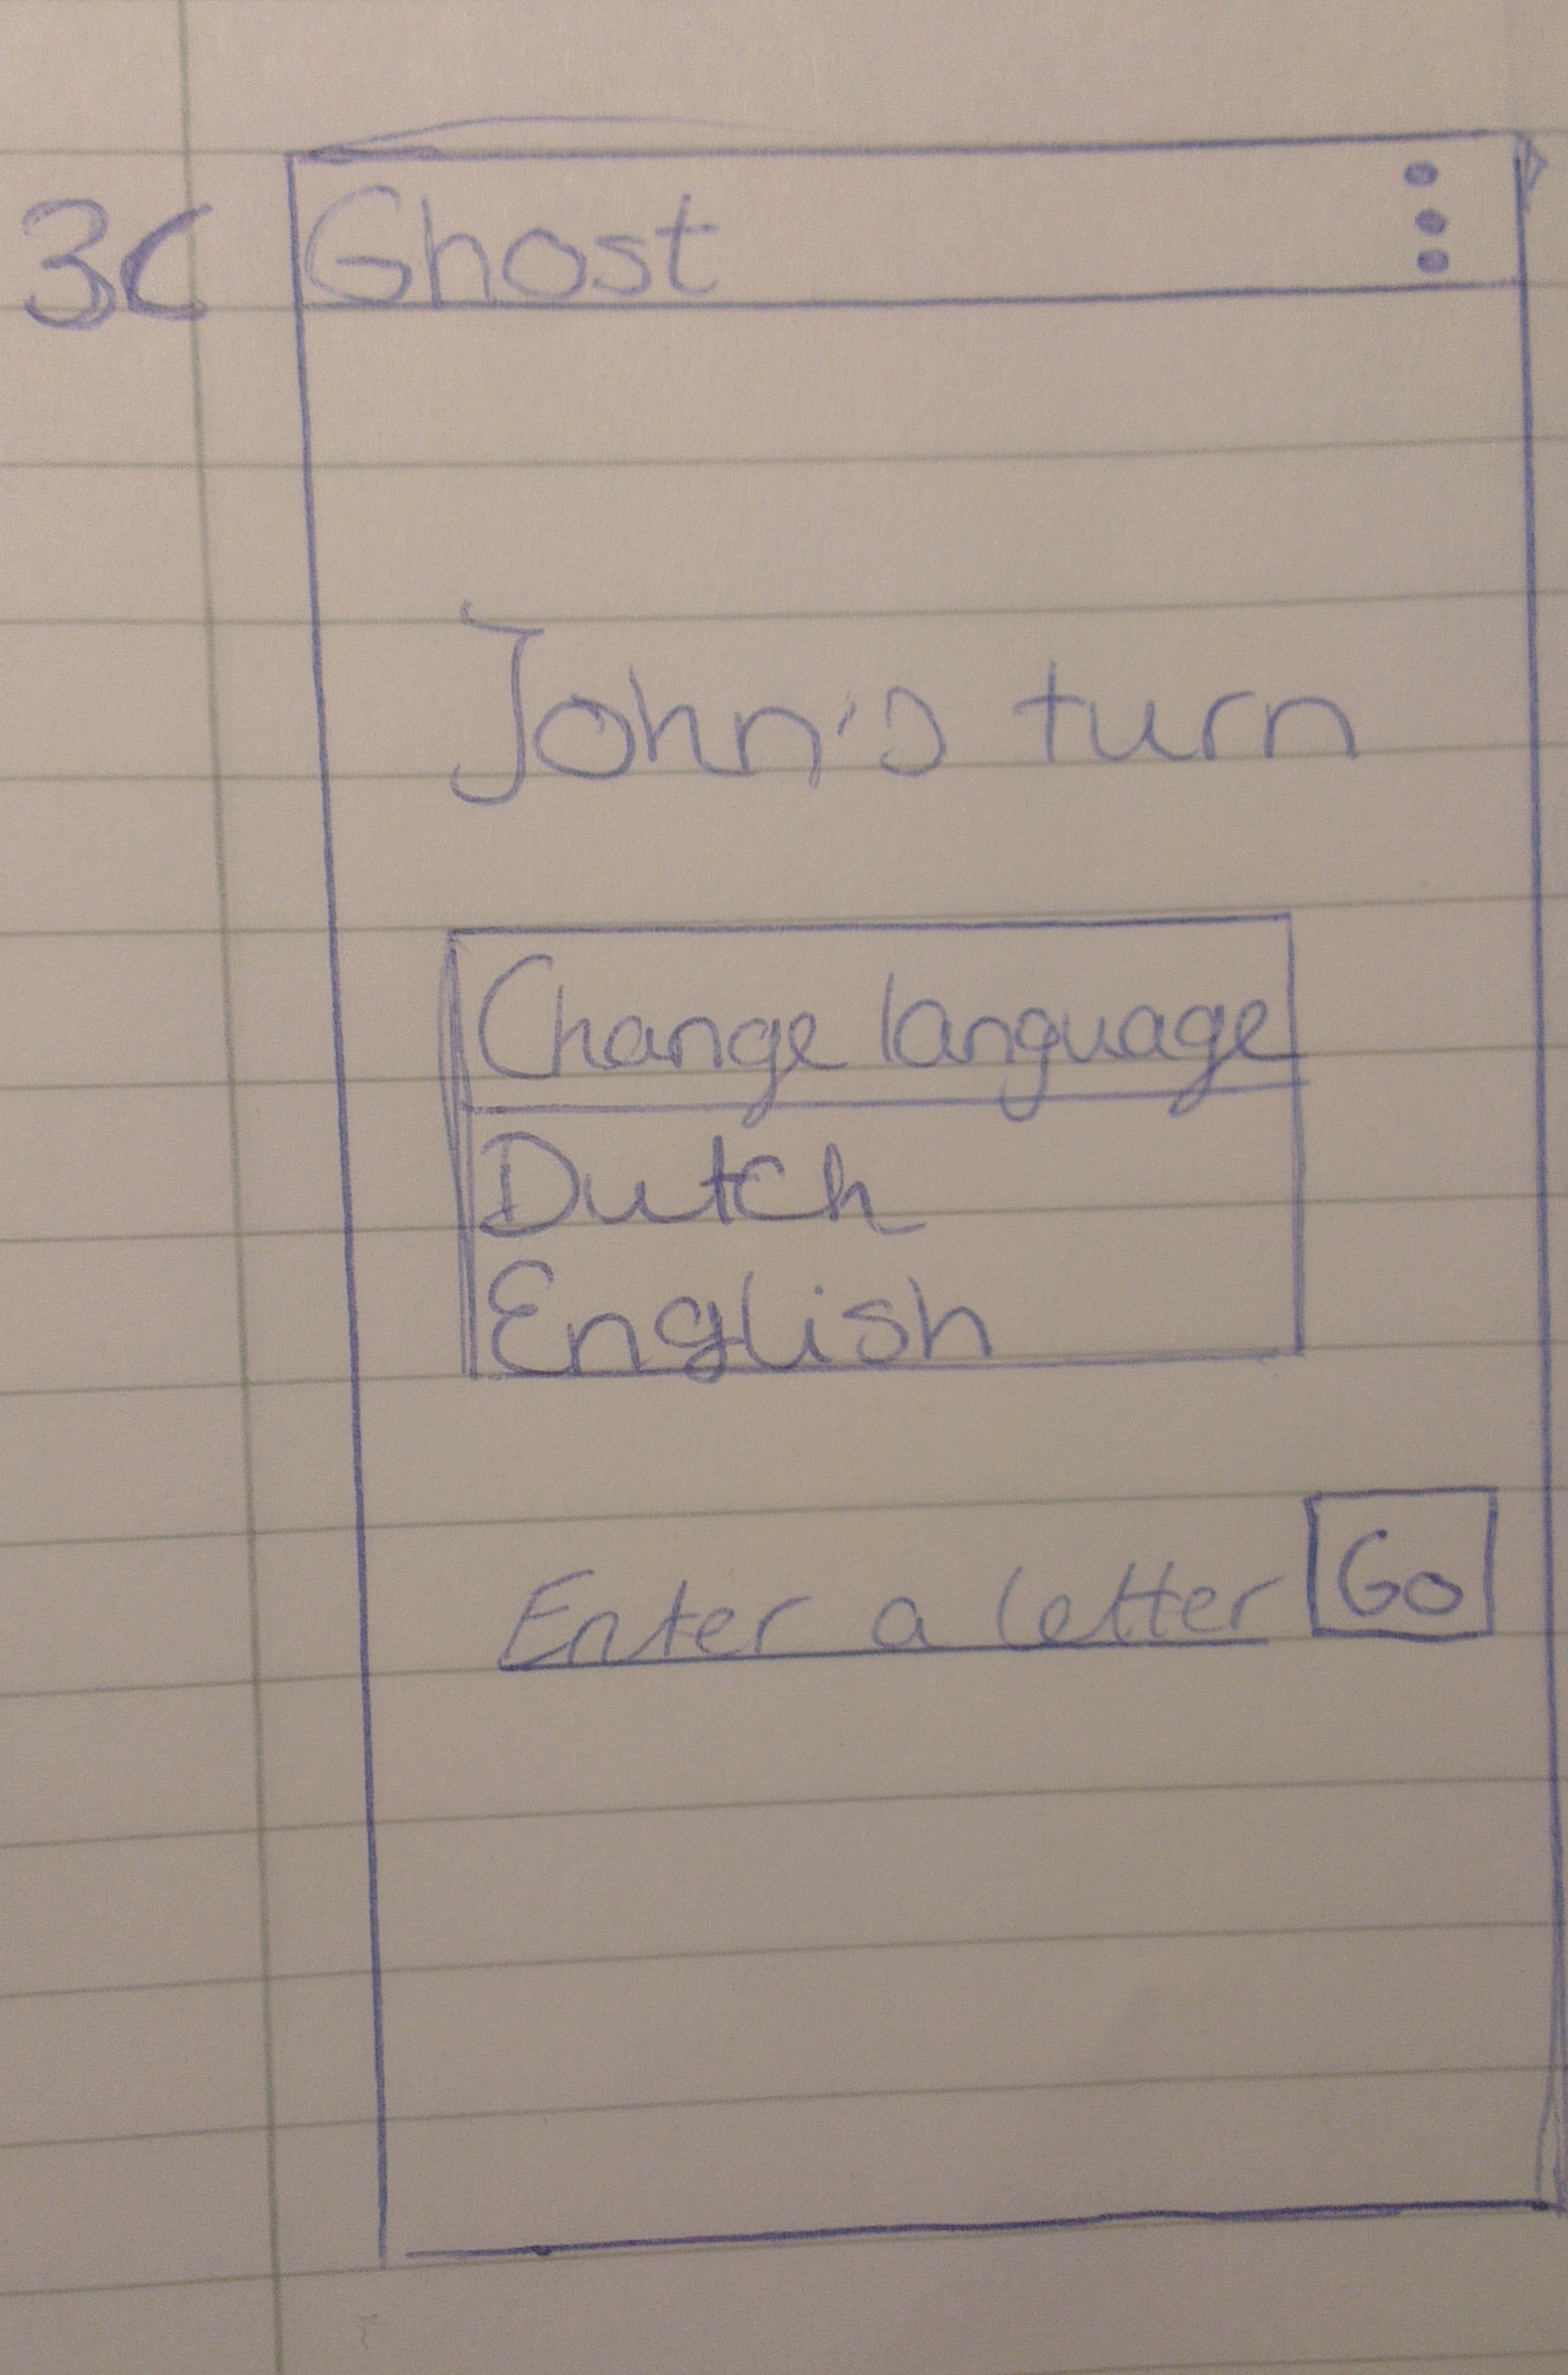 3C
Ghost
John's turn
Change language
Dutch
English
Enter a letter
Go